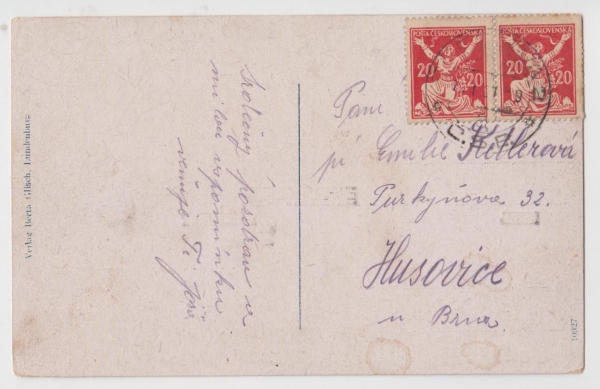 Verlag Berta Glisch, Lundenburg
Srdečný pozdrav a
milou vzpomínku
věnuje Ti
POŠTA ČESKOSLOVENSKÁ
20 20
POŠTA ČESKOSLOVENSKÁ
20 20
Paní
pí Emilie
Purkyňova 32.
Husovice
u Brna